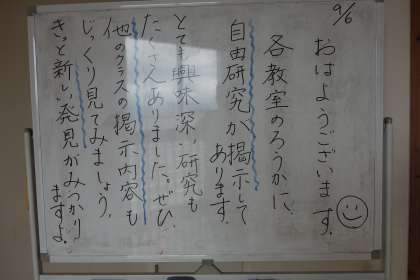 9/6
おはようございます。
各教室のろうかに、
自由研究が掲示して
あります。
とても興味深い研究も
たくさんありました。ぜひ、
他のクラスの掲示内容も
じっくり見てみましょう。
きっと新しい発見がみつかり
ますよ。